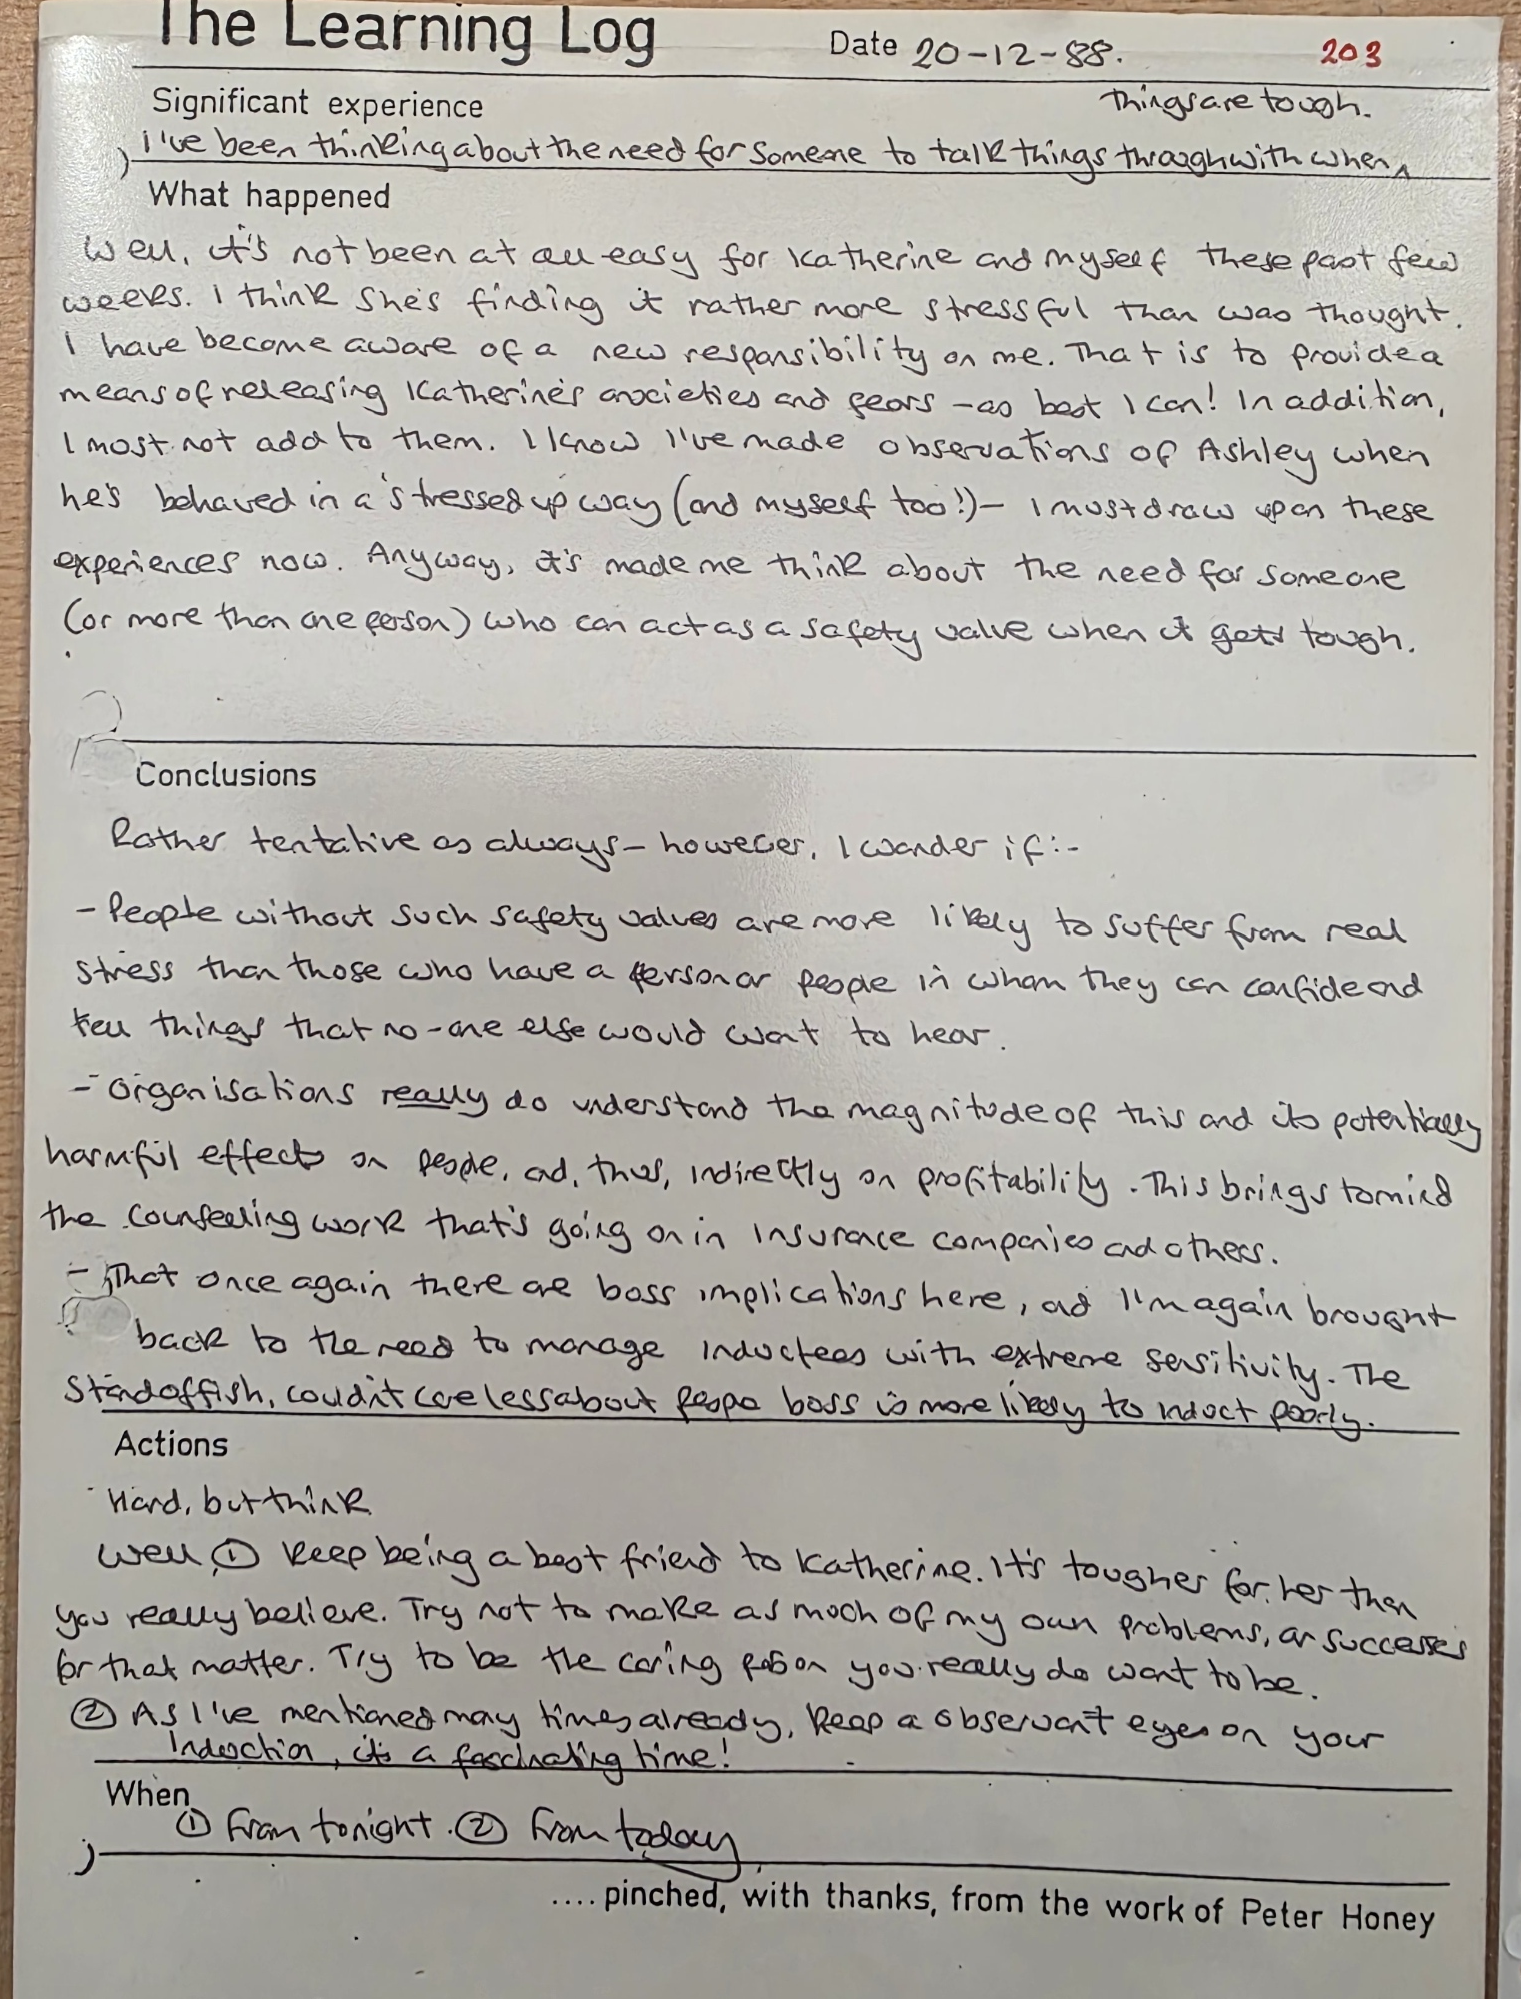 The Learning Log Date 20-12-88. 203
Significant experience things are tough.
I've been thinking about the need for someone to talk things through with when ^
What happened
Well, it's not been at all easy for Katherine and myself these past few
weeks. I think she's finding it rather more stressful than was thought.
I have become aware of a new responsibility on me. That is to provide a
means of releasing Katherine's anxieties and fears - as best I can! In addition,
I must not add to them. I know I've made observations of Ashley when
he's behaved in a stressed up way (and myself too!) - I must draw upon these
experiences now. Anyway, it's made me think about the need for someone
(or more than one person) who can act as a safety valve when it gets tough.
Conclusions
Rather tentative as always - however, I wonder if :-
- People without such safety valves are more likely to suffer from real
stress than those who have a person or people in whom they can confide and
tell things that no-one else would want to hear.
- Organisations really do understand the magnitude of this and its potentially
harmful effects on people, and, thus, indirectly on profitability. This brings to mind
the counselling work that's going on in insurance companies and others.
- That once again there are boss implications here, and I'm again brought
back to the need to manage inductees with extreme sensitivity. The
standoffish, couldn't care less about people boss is more likely to induct poorly.
Actions
Hard, but think
Well, ① Keep being a best friend to Katherine. It's tougher for her than
you really believe. Try not to make as much of my own problems, or successes
for that matter. Try to be the caring person you really do want to be.
② As I've mentioned many times already, keep a observant eyes on your
Induction, it's a fascinating time!
When
① From tonight. ② From today
.... pinched, with thanks, from the work of Peter Honey